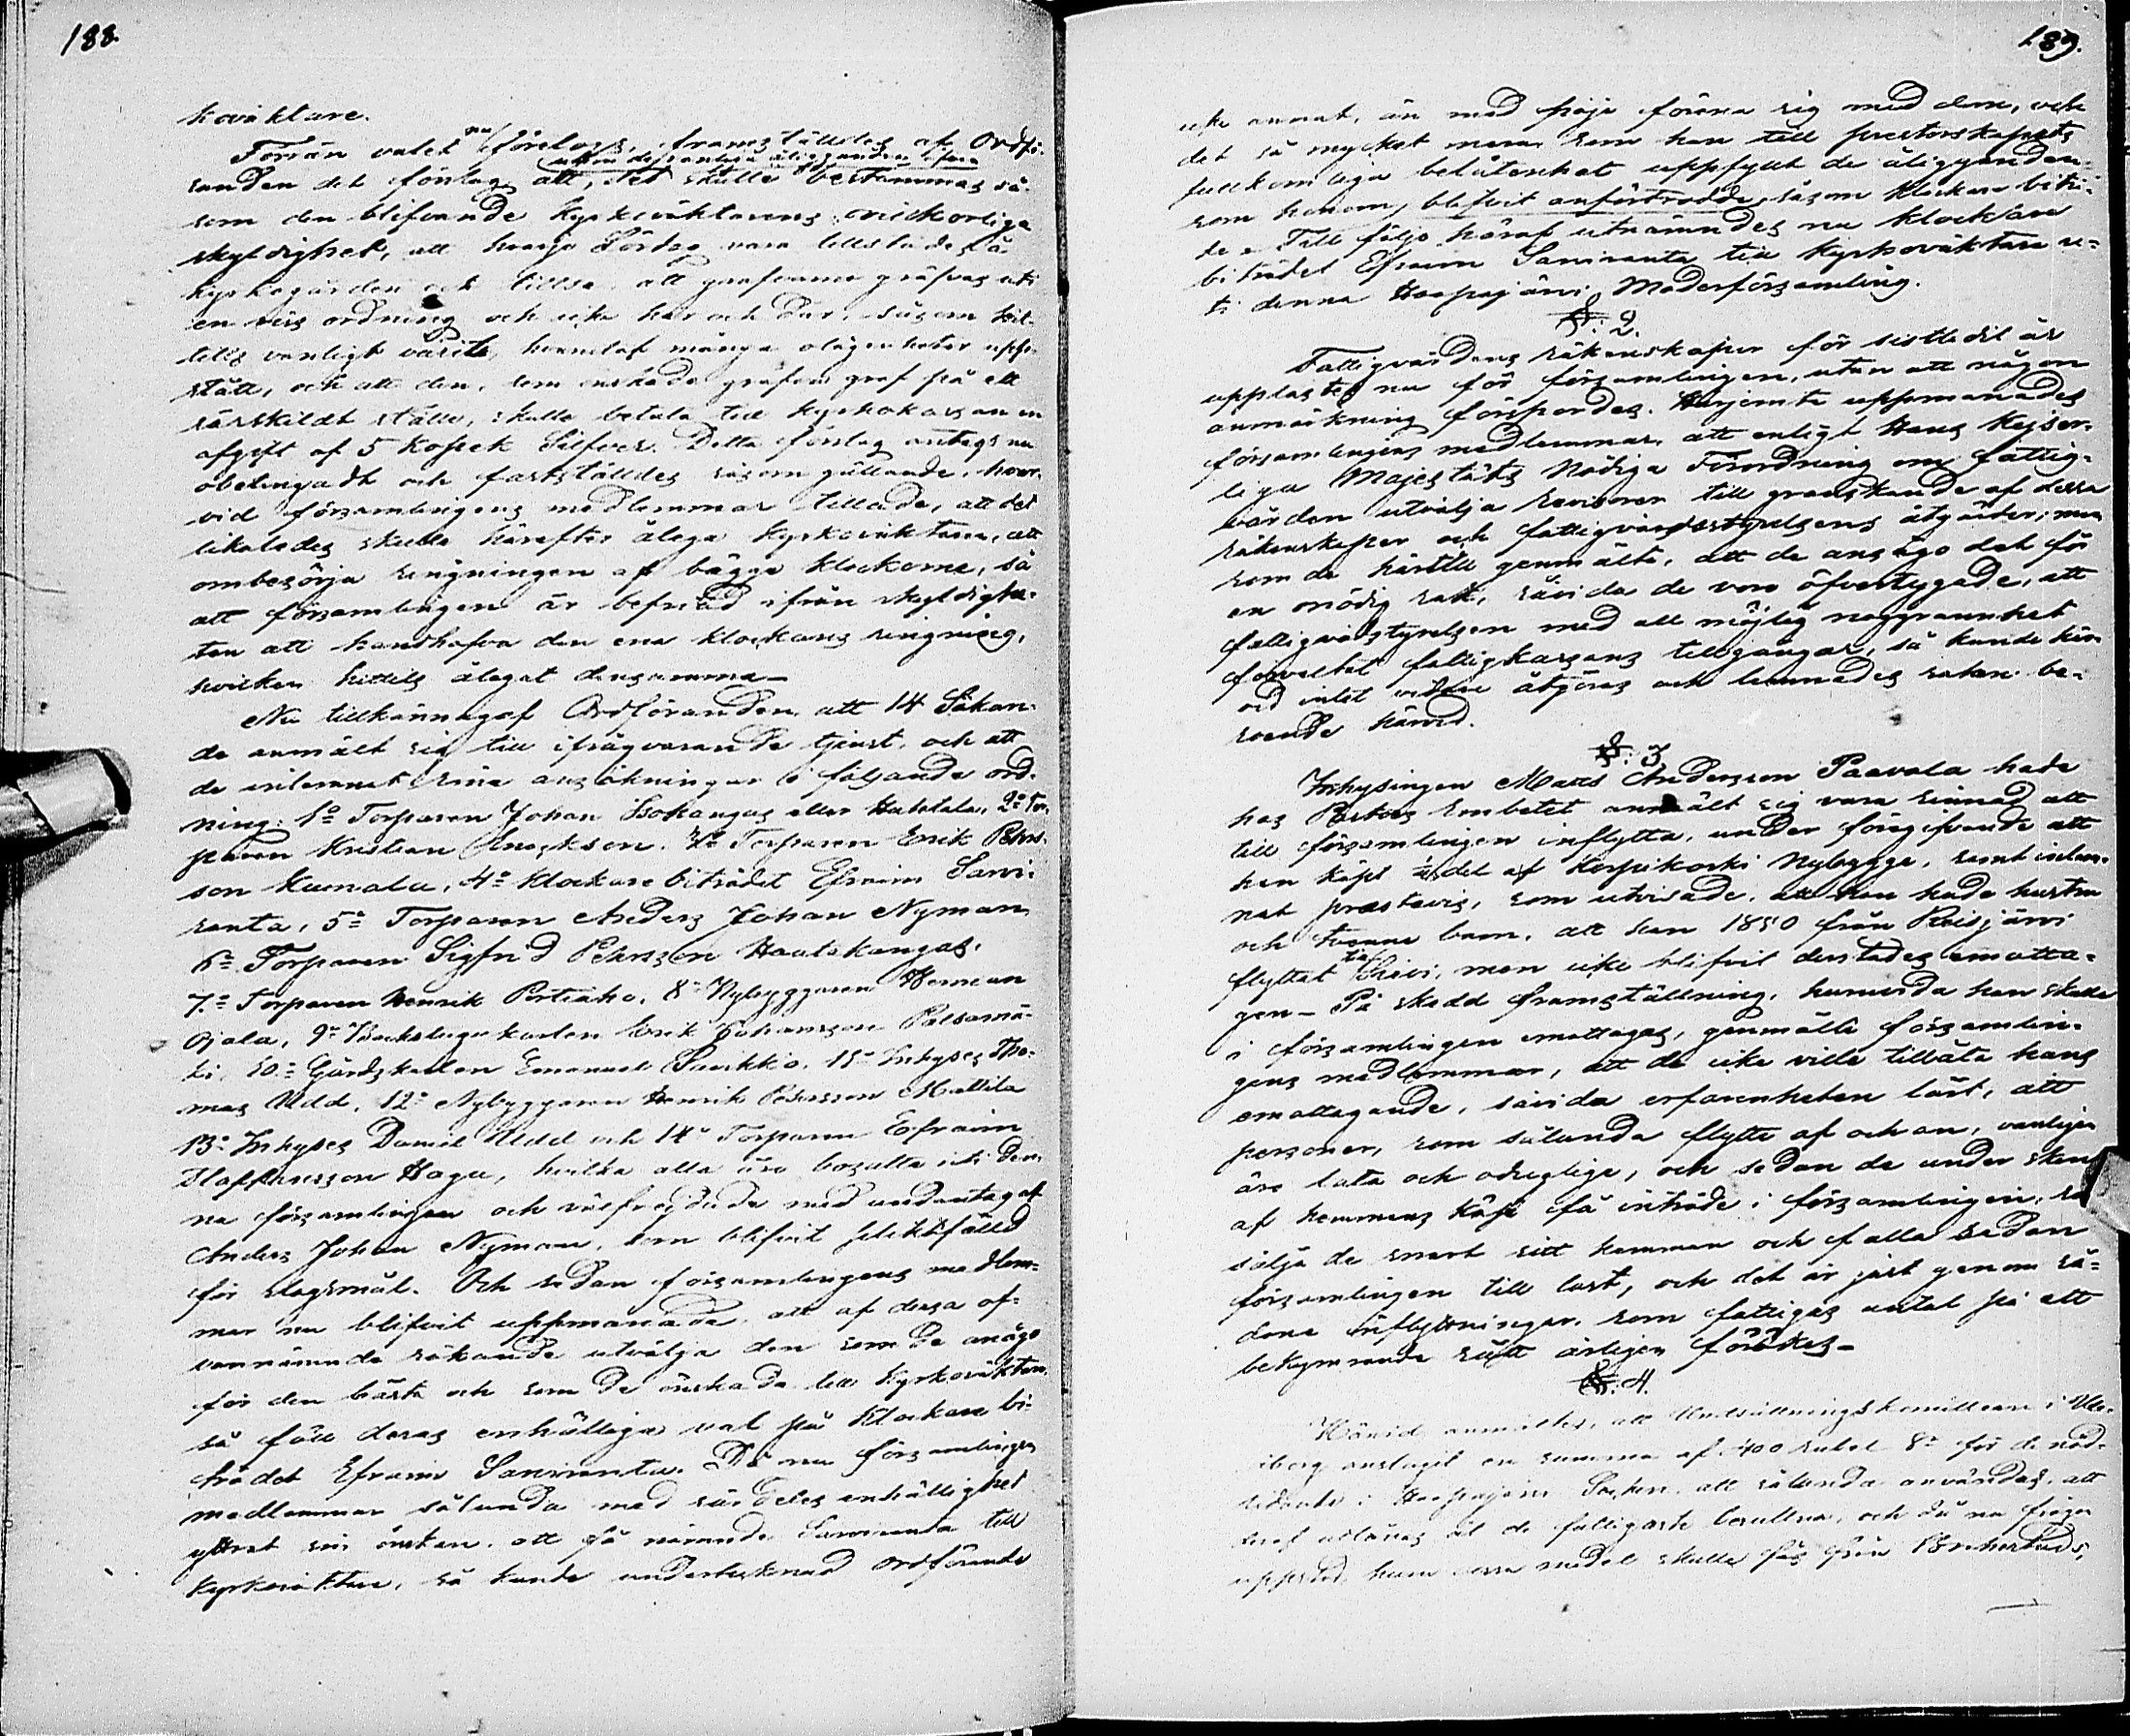 188.
koväktare.
Förrän valet nu företogs, framställdes af Ordfö-
randen det förslag, att, det skulle bestämmas så-
som den blifvande Kyrkoväktarens ovilkorliga
skyldighet, att hvarje Lördag vara tillstädes å
kyrkogården och tillse att grafvarne gräfvas uti
en viss ordning och icke här och där, såsom hit-
tills vanligt varit, hvarutaf många olägenheter upp-
stått, och att den, som önskade gräfva graf på ett
särskildt ställe, skulle betala till kyrkokassan en
afgift af 5 Kopek Silfver. Detta förslag antogs nu
obetingadt och fastställdes såsom gällande, hvar-
vid församlingens medlemmar tillade, att det
likaledes skulle härefter åläga kyrkoväktaren, att
ombesörja ringningen af bägge klockorne, så
att församlingen är befriad ifrån skyldighe-
ten att handhafva den ena klockans ringning,
hvilken hittills ålegat densamma_
Nu tillkännagaf Ordföranden, att 14 Sökan-
de anmält sig till ifrågavarande tjenst, och att
de inlemnat sina ansökningar i följande ord-
ning: 1o Torparen Johan Isokangas eller Huhtala, 2o Tor-
paren Kristian Enockson. 3o Torparen Erik Pehrs-
son Kumala, 4o Klockare biträdet Efraim Savi-
ranta, 5o Torparen Anders Johan Nyman
6o Torparen Sigfrid Pehrsson Hautakangas,
7o Torparen Henrik Portiaho, 8o Nybyggaren Herman
Ojala, 9o Backstugukarlen Erik Johansson Palsamä-
ki, 10o Gårdskarlen Emanuel Saukko, 11o Inhyses Tho-
mas Udd, 12o Nybyggaren Henrik Pehrsson Mattila
13o Inhyses Daniel Udd och 14o Torparen Efraim
Staffansson Haga, hvilka alla äro bosatta uti den-
na församlingen och välfrejdade med undantag af
Anders Johan Nyman, som blifvit pliktfälld
för slagsmål. Och sedan församlingens medlem-
mar nu blifvit uppmanade, att af dessa of-
vannämnde sökande utvälja den som de ansågo
för den bästa och som de önskade till Kyrkoväktare,
så föll deras enhälliga val på Klockare bi-
trädet Efraim Saviranta. Då nu församlingens
medlemmar sålunda med särdeles enhällighet
yttrat sin önskan, att få nämnde Saviranta till
kyrkoväktare, så kunde undertecknad ordförande
189.
icke annat, än med nöje förena sig med dem, och
det så mycket mera som han till prestorskapets
fullkomliga belåtenhet uppfyllt de åligganden,
som honom, blifvit anförtrodde såsom Klockare biträ-
de. Till följe häraf utnämndes nu Klockare
biträdet Efraim Saviranta till Kyrkoväktare u-
ti denna Haapajärvi Moderförsamling.
§: 2.
Fattigvårdens räkenskaper för sistledit år
upplästes nu för församlingen, utan att någon
anmärkning förspordes. Härjemte uppmanades
församlingens medlemmar, att enligt Hans Kejser-
liga Majestäts Nådiga Förordning om fattig-
vården utvälja revisorer till granskande af dessa
räkenskaper och fattigvårdsstyrelsens åtgärder; men
som de härtill genmälte, att de ansågo det för
en onödig sak, såvida de voro öfvertygade, att
fattigvårdsstyrelsen med all möjlig noggrannhet
förvaltat fattigkassans tillgångar, så kunde här-
vid intet vidare åtgöras och lemnades saken be-
roende härvid.
§: 3
Inhysingen Matts Andersson Paavola hade
hos Pastors Embetet anmält sig vara sinnad att
till församlingen inflytta, under föregifvande att
han köpt del af Korpikoski Nybygge, samt inlem-
nat prestevis, som utvisade, att han hade hustru
och tvenne barn, att han 1850 från Reisjärvi
flyttat till Sievi, men icke blifvit derstädes emotta-
gen_ På skedd framställning, huruvida han skulle
i församlingen emottagas, genmälte församlin-
gens medlemmar, att de icke ville tillåta hans
emottagande, såvida erfarenheten lärt, att
personer, som sålunda flytta af och an, vanligen
äro lata och oduglige, och sedan de under sken
af hemmans köp få inträde i församlingen, så
sälja de snart sitt hemman och falla sedan
församlingen till last, och det är just genom så-
dana inflyttningar, som fattigas antal på ett
bekymrande sätt årligen förökes_
§: 4.
Härvid anmältes, att Undsättningskomitteen i Ule-
åborg anslagit en summa af 400 rubel Sr för de nöd-
lidande i Haapajärvi Socken, att sålunda användas, att
deraf utlånas åt de fattigaste bosuttna, och då nu frågan
uppstod, huru dessa medel skulle fås från Brahestad,